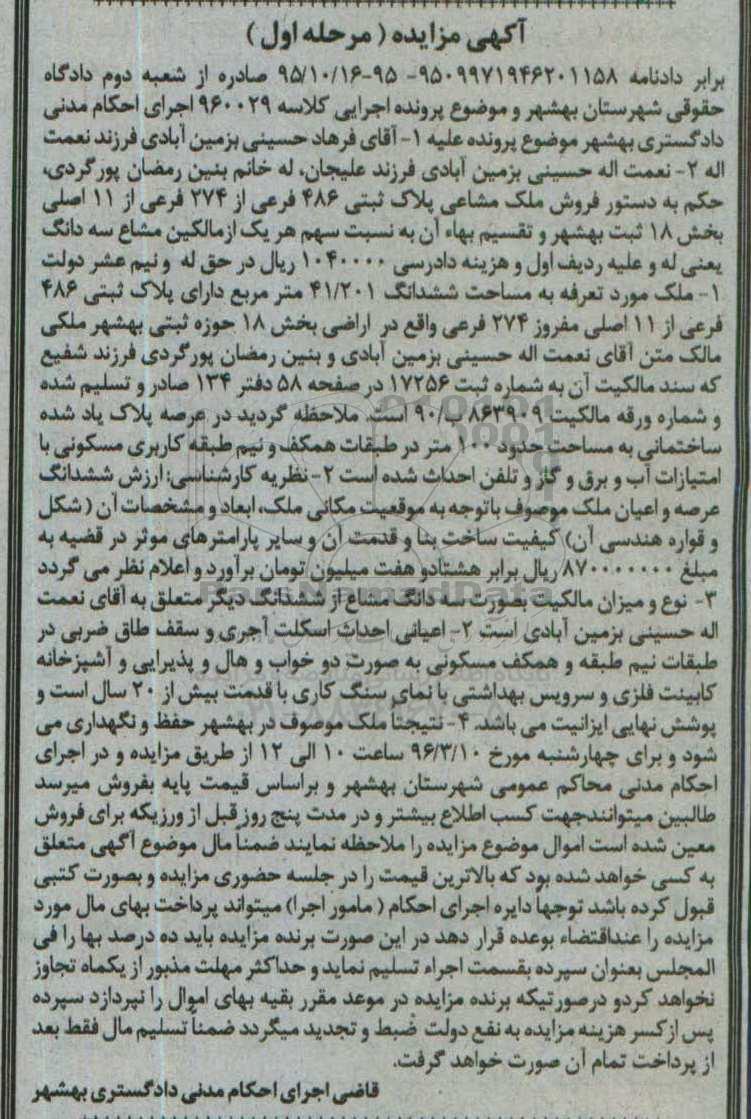 آگهی مزایده (مرحله اول)
برابر دادنامه ۹۵۰۹۹۷۱۹۴۶۲۰۱۱۵۸- ۹۵-۹۵/۱۰/۱۶ صادره از شعبه دوم دادگاه
حقوقی شهرستان بهشهر و موضوع پرونده اجرایی کلاسه ۹۶۰۰۲۹ اجرای احکام مدنی
دادگستری بهشهر موضوع پرونده علیه ۱- آقای فرهاد حسینی بزمین آبادی فرزند نعمت
اله ۲- نعمت اله حسینی بزمین آبادی فرزند علیجان، له خانم بنین رمضان پورگردی،
حکم به دستور فروش ملک مشاعی پلاک ثبتی ۴۸۶ فرعی از ۲۷۴ فرعی از ۱۱ اصلی
بخش ۱۸ ثبت بهشهر و تقسیم بهاء آن به نسبت سهم هر یک ازمالکین مشاع سه دانگ
یعنی له و علیه ردیف اول و هزینه دادرسی ۱۰۴۰۰۰۰ ریال در حق له و نیم عشر دولت
۱- ملک مورد تعرفه به مساحت ششدانگ ۴۱/۲۰۱ متر مربع دارای پلاک ثبتی ۴۸۶
فرعی از ۱۱ اصلی مفروز ۲۷۴ فرعی واقع در اراضی بخش ۱۸ حوزه ثبتی بهشهر ملکی
مالک متن آقای نعمت اله حسینی بزمین آبادی و بنین رمضان پورگردی فرزند شفیع
که سند مالکیت آن به شماره ثبت ۱۷۲۵۶ در صفحه ۵۸ دفتر ۱۳۴ صادر و تسلیم شده
و شماره ورقه مالکیت ۸۶۳۹۰۹ ب/۹۰ است. ملاحظه گردید در عرصه پلاک یاد شده
ساختمانی به مساحت حدود ۱۰۰ متر در طبقات همکف و نیم طبقه کاربری مسکونی با
امتیازات آب و برق و گاز و تلفن احداث شده است ۲- نظریه کارشناسی: ارزش ششدانگ
عرصه و اعیان ملک موصوف باتوجه به موقعیت مکانی ملک، ابعاد و مشخصات آن (شکل
و قواره هندسی آن) کیفیت ساخت بنا و قدمت آن و سایر پارامترهای موثر در قضیه به
مبلغ ۸۷۰۰۰۰۰۰۰ ریال برابر هشتادو هفت میلیون تومان برآورد و اعلام نظر می گردد
۳- نوع و میزان مالکیت بصورت سه دانگ مشاع از ششدانگ دیگر متعلق به آقای نعمت
اله حسینی بزمین آبادی است ۲- اعیانی احداث اسکلت آجری و سقف طاق ضربی در
طبقات نیم طبقه و همکف مسکونی به صورت دو خواب و هال و پذیرایی و آشپزخانه
کابینت فلزی و سرویس بهداشتی با نمای سنگ کاری با قدمت بیش از ۲۰ سال است و
پوشش نهایی ایزانیت می باشد. ۴- نتیجتاً ملک موصوف در بهشهر حفظ و نگهداری می
شود و برای چهارشنبه مورخ ۹۶/۳/۱۰ ساعت ۱۰ الی ۱۲ از طریق مزایده و در اجرای
احکام مدنی محاکم عمومی شهرستان بهشهر و براساس قیمت پایه بفروش میرسد
طالبین میتوانندجهت کسب اطلاع بیشتر و در مدت پنج روز قبل از ورزیکه برای فروش
معین شده است اموال موضوع مزایده را ملاحظه نمایند ضمناً مال موضوع آگهی متعلق
به کسی خواهد شده بود که بالاترین قیمت را در جلسه حضوری مزایده و بصورت کتبی
قبول کرده باشد توجهاً دایره اجرای احکام (مامور اجرا) میتواند پرداخت بهای مال مورد
مزایده را عنداقتضاء بوعده قرار دهد در این صورت برنده مزایده باید ده درصد بها را فی
المجلس بعنوان سپرده بقسمت اجراء تسلیم نماید و حداکثر مهلت مذبور از یکماه تجاوز
نخواهد کردو درصورتیکه برنده مزایده در موعد مقرر بقیه بهای اموال را نپردازد سپرده
پس ازکسر هزینه مزایده به نفع دولت ضبط و تجدید میگردد ضمناً تسلیم مال فقط بعد
از پرداخت تمام آن صورت خواهد گرفت.
قاضی اجرای احکام مدنی دادگستری بهشهر